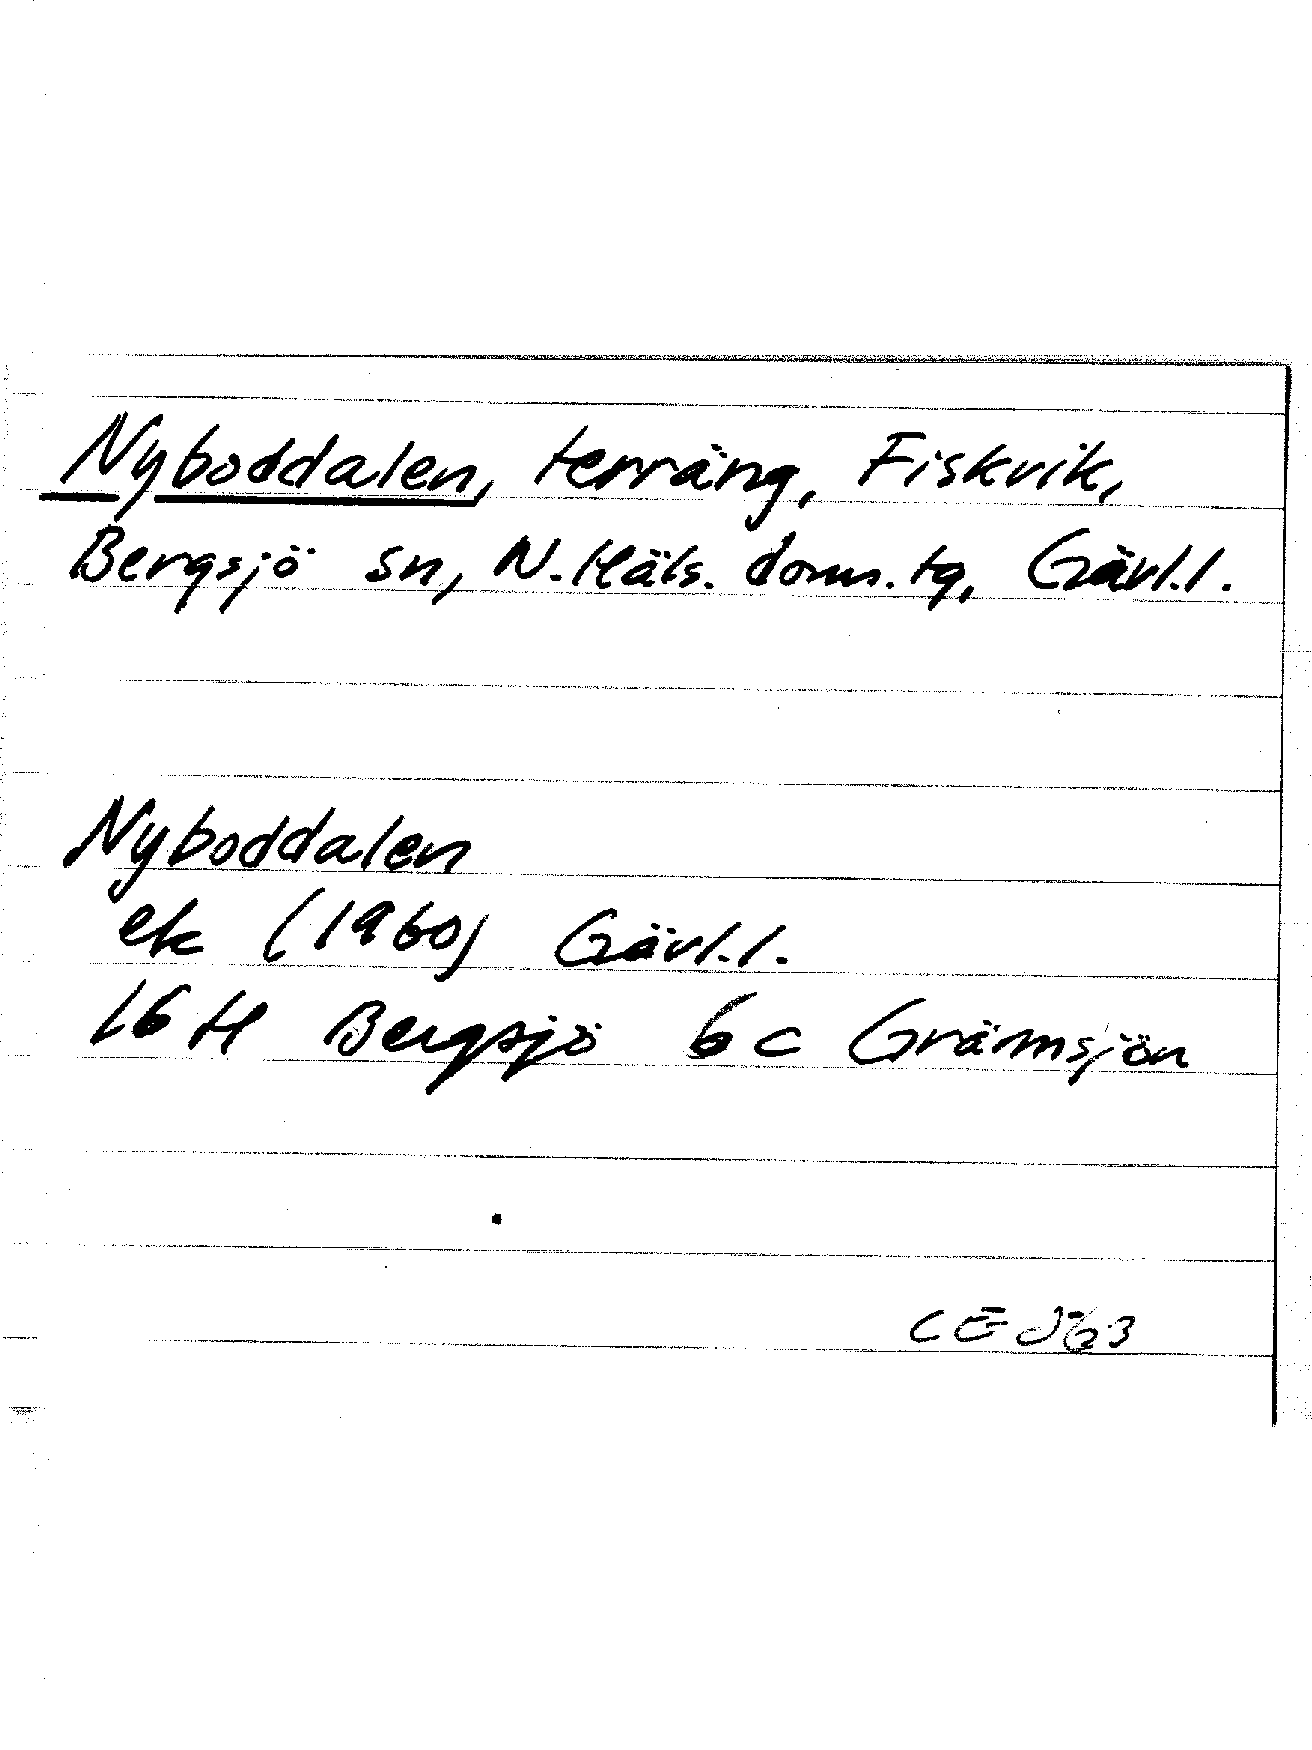 Nyboddalen, terräng, Fiskvik,
Bergsjö sn, N. Häls. doms. tg, Gävl. l.
Nyboddalen
ek (1960) Gävl. l.
16 H Bergsjö 6 c Grämsjön
CEJ 63